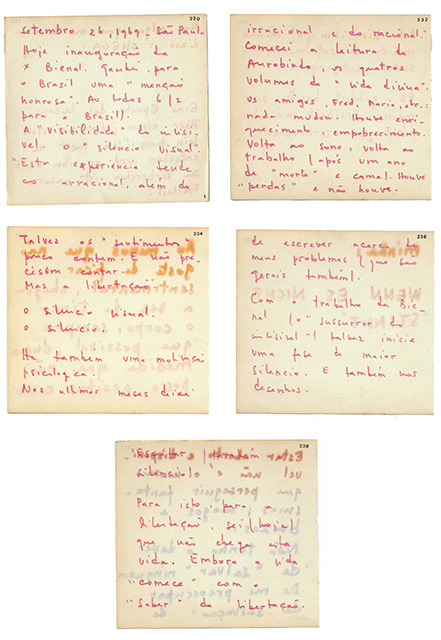 230
setembro 26, 1969. São Paulo
Hoje inauguração da
X Bienal. Ganhei, para
o Brasil uma "menção
honrosa". Ao todos 6 1/2
para o Brasil!
A "visibilidade" do invisi-
vel. o "silencio visual".
"Esta experiencia tende
ao arracional, alem do
232
irracional e do racional."
Comecei a leitura de
Aurobindo, os quatros
volumes da "vida divina".
os amigos, Fred, Mario, etc.:
nada mudou. Houve enri-
quecimento, empobrecimento.
Volta ao sono, volta ao
trabalho (após um ano
de "morte" e cama). Houve
"perdas" e não houve.
234
Talvez os "sentimentos"
pouco contem. E não pre-
cisem contar.
Mas a libertação.
o silencio visual.
o silencio.
Ha tambem uma
psicologica.
Nos ultimos meses deixei
236
de escrever acerca de
meus problemas (que são
gerais tambem).
Com o trabalho da Bie-
nal (o "sussurrar do
invisivel") talvez inicie
uma fase de maior
silencio. E tambem nos
desenhos.
238
(tambem o
silencio)
Para isto, para,
libertação, sei (hoje)
que não chega esta
vida. Embora a vida
"comece" com o
"Saber" da libertação.